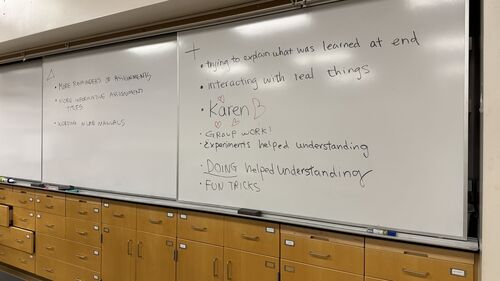 △
• MORE REMINDERS OF ASSIGNMENTS
• MORE INFORMATIVE ASSIGNMENT
TITLES
• WORDING IN LAB MANUALS
+
• trying to explain what was learned at end
• interacting with real things
• Karen B
• GROUP WORK!
• Experiments helped understanding
• DOING helped understanding
• FUN TRICKS